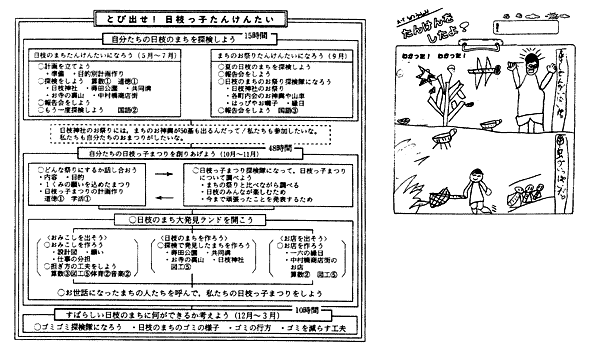 とび出せ！ 日枝っ子たんけんたい
自分たちの日枝のまちを探検しよう 15時間
日枝のまちたんけんたいになろう（5月～7月）
○計画を立てよう
・準備 ・目的別計画作り
○探検をしよう 算数① 道徳①
・日枝神社 ・蒔田公園 ・共同溝
・お寺の裏山 ・中村橋商店街
○報告会をしよう
○もう一度探検しよう 国語②
まちのお祭りたんけんたいになろう（9月）
○夏の日枝のまちを探検しよう
○報告会をしよう
○日枝のまちのお祭り探検隊になろう
・日枝神社のお祭り
・各町内会のお神輿や山車
・はっぴやお囃子 ・縁日
○報告会をしよう 国語③
日枝神社のお祭りには、まちのお神輿が30基も出るんだって／私たちも参加したいな。
私たちも自分たちのおまつりがしたいな。
48時間
自分たちの日枝っ子まつりを創りあげよう（10月～11月）
○どんな祭りにするか話し合おう
・内容 ・目的
・1くみの願いを込めたまつり
・日枝っ子まつりの計画作り
道徳① 学活①
○日枝っ子まつり探検隊になって、日枝っ子まつり
について調べよう
・まちの祭りと比べながら調べる
・日枝のみんなが楽しむため
・今まで頑張ったことを発表するため
○日枝のまち大発見ランドを開こう
〈おみこしを出そう〉
○おみこしを作ろう
・設計図 ・願い
・仕事の分担
○担ぎ方の工夫をしよう
算数③図工⑤体育②音楽②
〈日枝のまちを作ろう〉
○探検で発見したまちを作ろう
・蒔田公園 ・共同溝
・お寺の裏山 ・日枝神社
図工⑤
〈お店を出そう〉
○お店を作ろう
・一六の縁日
・中村橋商店街の
お店
算数② 図工⑤
○お世話になったまちの人たちを呼んで、私たちの日枝っ子まつりをしよう
10時間
すばらしい日枝のまちに何ができるか考えよう（12月～3月）
○ゴミゴミ探検隊になろう ・日枝のまちのゴミの様子 ・ゴミの行方 ・ゴミを減らす工夫
たんけんを
したよ！
わかった！ わかった！